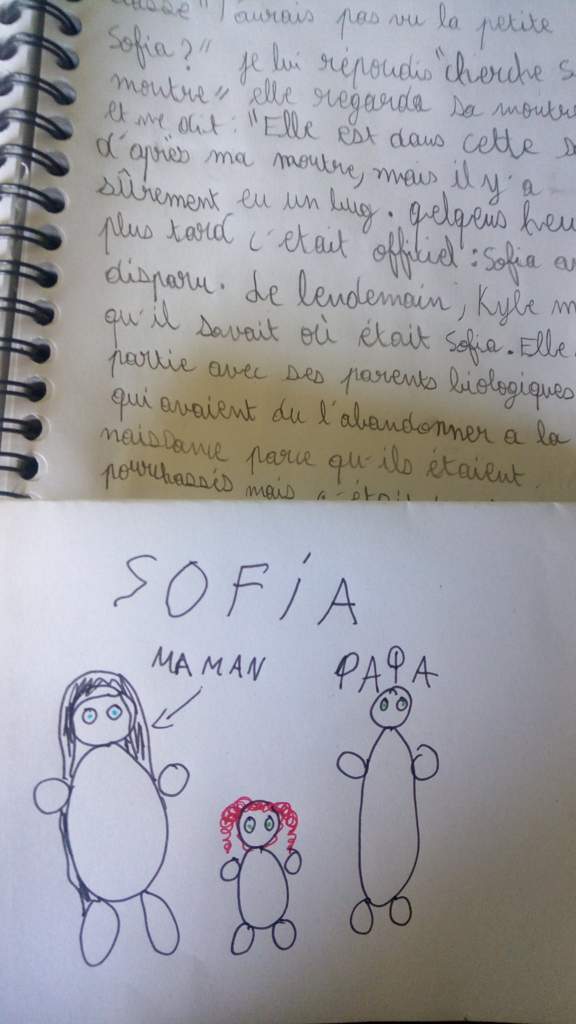 classe" t'aurais pas vu la petite
Sofia?" je lui répondis "cherche
montre" elle regarda sa montre
et me dit : "Elle est dans cette
d'après ma montre, mais il y'a
sûrement eu un bug. qelqeus heu
plus tard c'était offitiel : Sofia
disparu. Le lendemain, Kyle m
qu'il savait où était Sofia. Elle
partie avec ses parents biologiques
qui avaient du l'abandonner a la
naissance parce qu'ils étaient
pourchassés mais c'était
SOFIA
MAMAN
PAPA